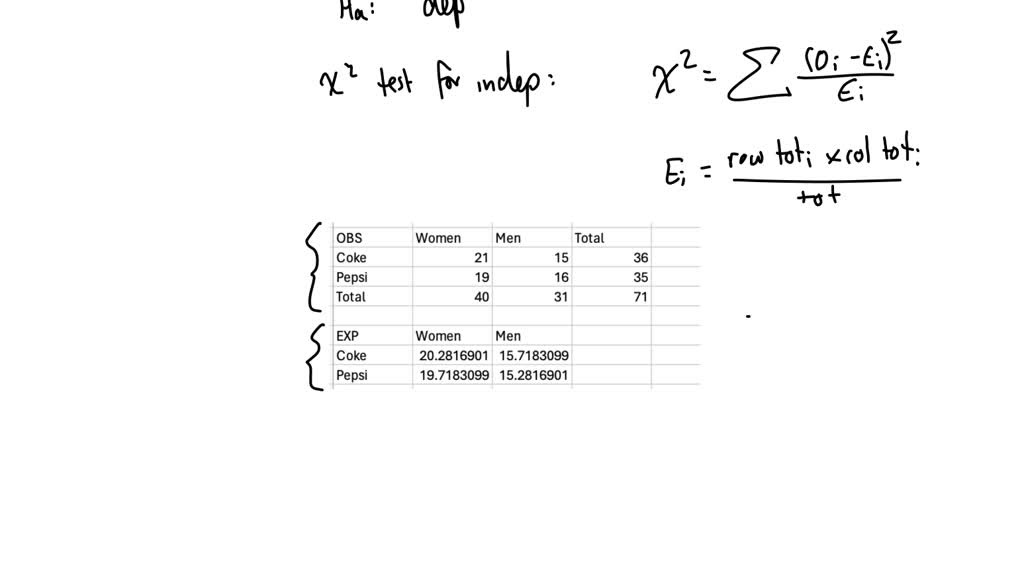 Ha: dep
χ² test for indep:
χ² = Σ (Oi - Ei)² / Ei
Ei = row toti x col toti / tot
OBS Women Men Total
Coke 21 15 36
Pepsi 19 16 35
Total 40 31 71
EXP Women Men
Coke 20.2816901 15.7183099
Pepsi 19.7183099 15.2816901